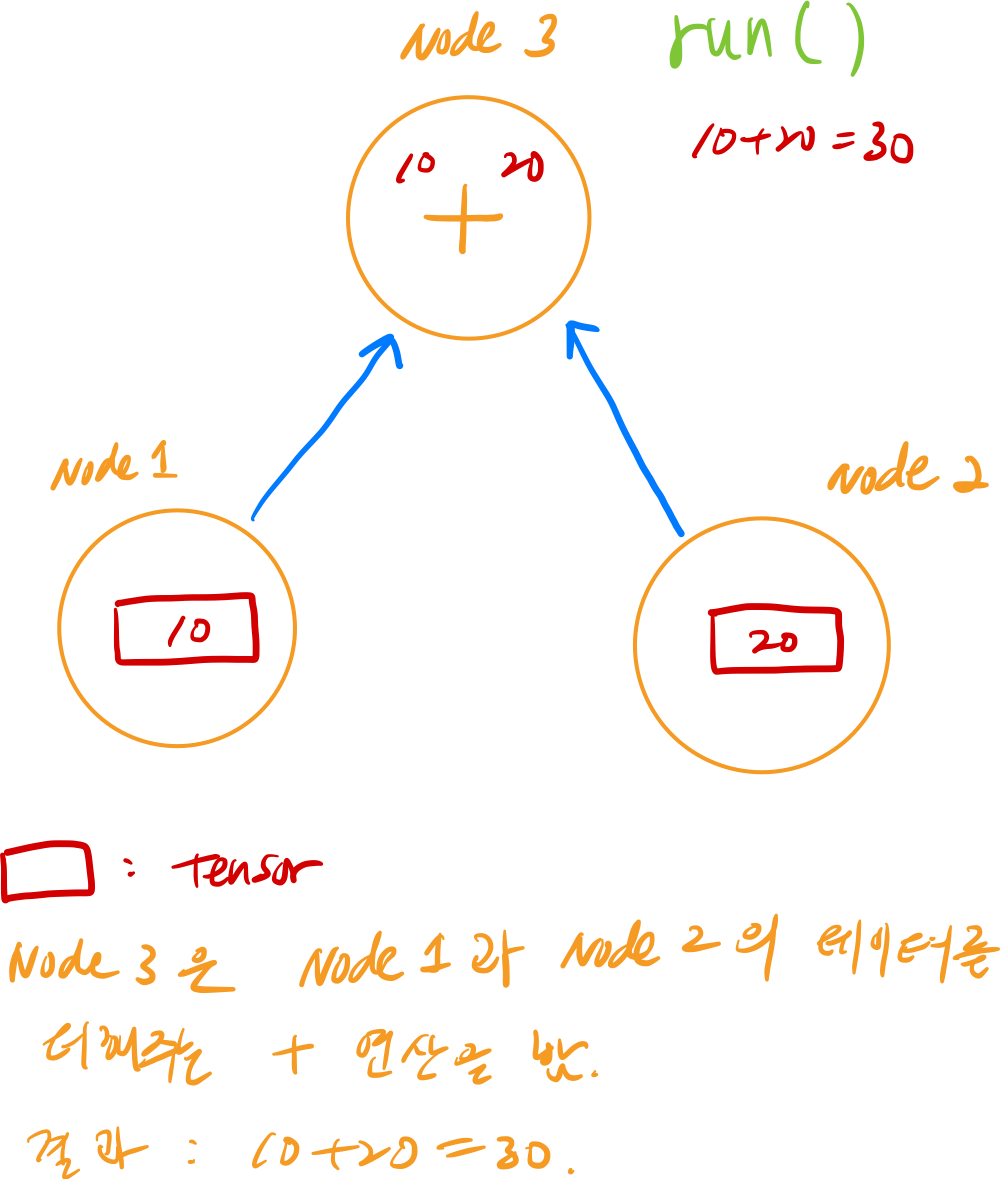 Node 3
run()
10+20=30
10 20
+
Node 1
Node 2
10
20
: tensor
Node 3은 Node 1과 Node 2의 데이터를
더해주는 + 연산을
결과 : 10+20=30.